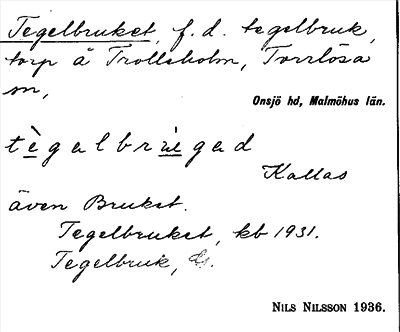 Tegelbruket, f. d. tegelbruk,
torp å Trollsholm, Torrlösa
sn,
Onsjö hd, Malmöhus län.
Kallas
även Bruket.
Tegelbruket, kb 1931.
Tegelbruk,
NILS NILSSON 1936.